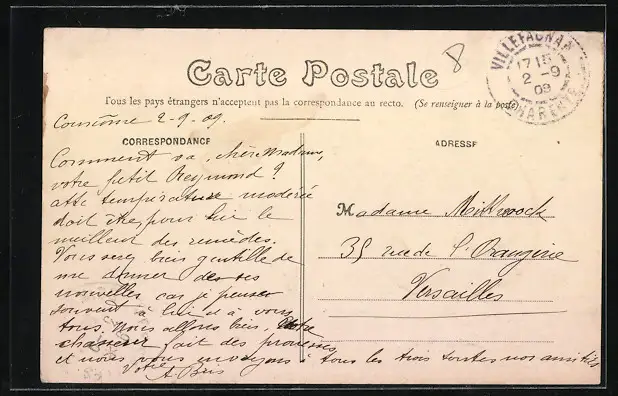 8
VILLEFAGNAN
17 15
2 -9
09
CHARENTE
Carte Postale
Tous les pays étrangers n'acceptent pas la correspondance au recto. (Se renseigner à la poste)
Courcôme 2-9-09.
CORRESPONDANCE
Comment va, chère Madame,
votre petit Reymond?
température modérée
doit être pour lui le
meilleur des remèdes.
Vous serez bien gentille de
me donner de ses
nouvelles car je pense
souvent à lui et à vous
tous. Nous allons bien,
fait des
et nous vous envoyons à tous les trois toutes nos amitiés
Votre
A Bris
ADRESSE
Madame
35 rue de l'Orangerie
Versailles